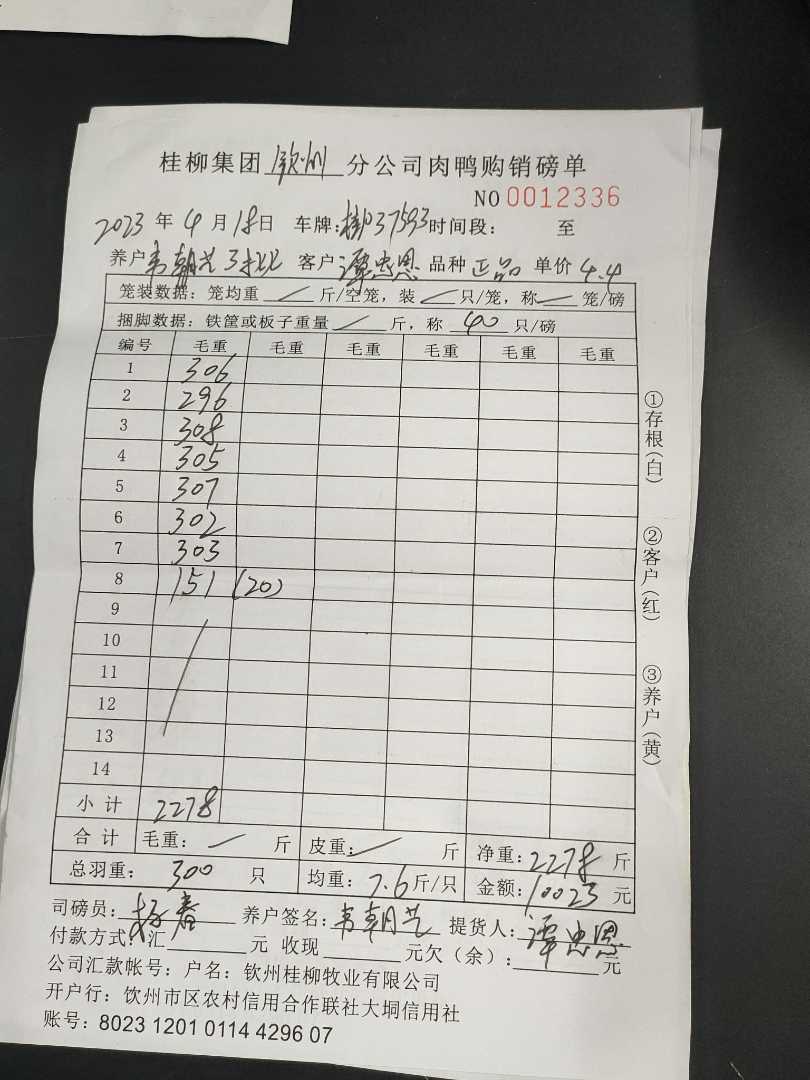 桂柳集团 钦州 分公司肉鸭购销磅单
NO 0012336
2023 年 4 月 18 日 车牌: 37593 时间段: 至
养户 韦朝艺 3批 客户 谭忠恩 品种 正品 单价 4.4
笼装数据: 笼均重 / 斤/空笼, 装 / 只/笼, 称 / 笼/磅
捆脚数据: 铁筐或板子重量 / 斤, 称 40 只/磅
编号 毛重 毛重 毛重 毛重 毛重 毛重
1 306
2 296
3 308
4 305
5 307
6 302
7 303
8 151 (20)
9
10
11
12
13
14
小计 2278
合计 毛重: / 斤 皮重: / 斤 净重: 2278 斤
总羽重: 300 只 均重: 7.6 斤/只 金额: 10023 元
司磅员: 养户签名: 韦朝艺 提货人: 谭忠恩
付款方式: 汇 元 收现 元欠(余): 元
公司汇款帐号: 户名: 钦州桂柳牧业有限公司
开户行: 钦州市区农村信用合作联社大垌信用社
账号: 8023 1201 0114 4296 07
①存根(白)
②客户(红)
③养户(黄)